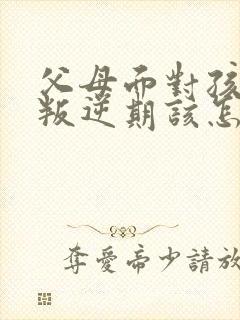 父母而對孩
叛逆期該怎
奪愛帝少請放